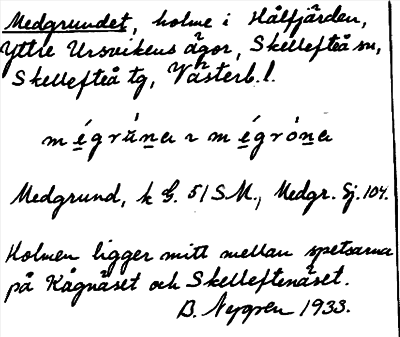 Medgrundet, holme i Hålfjärden,
Yttre Ursvikens ägor, Skellefteå sn,
Skellefteå tg, Västerb. l.
mégrŭna ~ mégróna
Medgrund, k G. 51 S.M., Medgr. Sj. 104.
Holmen ligger mitt mellan spetsarna
på Kågnäset och Skelleftenäset.
B. 1933.